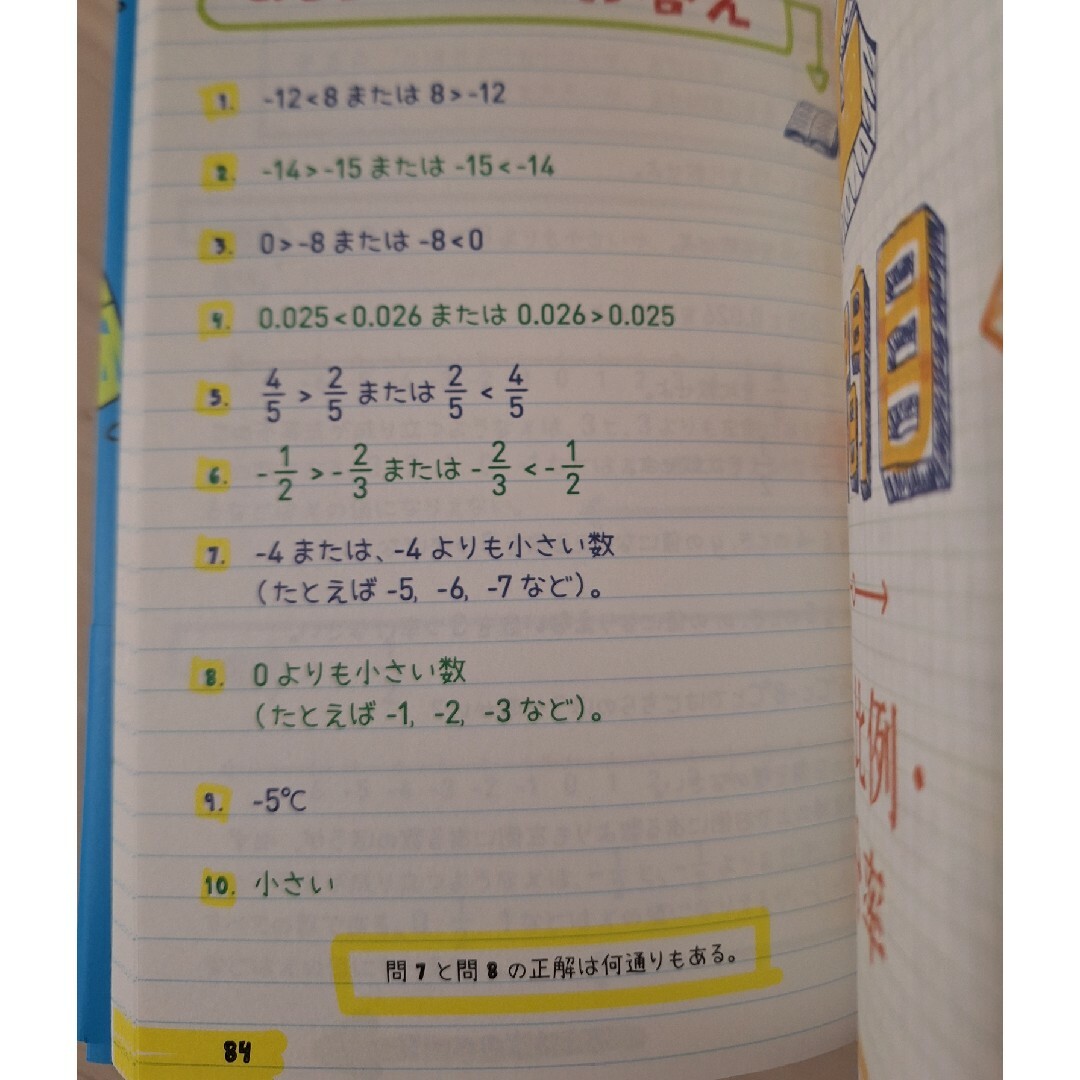 答え
1. -12<8 または 8>-12
2. -14>-15 または -15<-14
3. 0>-8 または -8<0
4. 0.025<0.026 または 0.026>0.025
5. 4/5 > 2/5 または 2/5 < 4/5
6. -1/2 >-2/3 または -2/3 <-1/2
7. -4 または、-4 よりも小さい数
(たとえば -5, -6, -7 など)。
8. 0 よりも小さい数
(たとえば -1, -2, -3 など)。
9. -5℃
10. 小さい
問 7 と問 8 の正解は何通りもある。
84
比例・